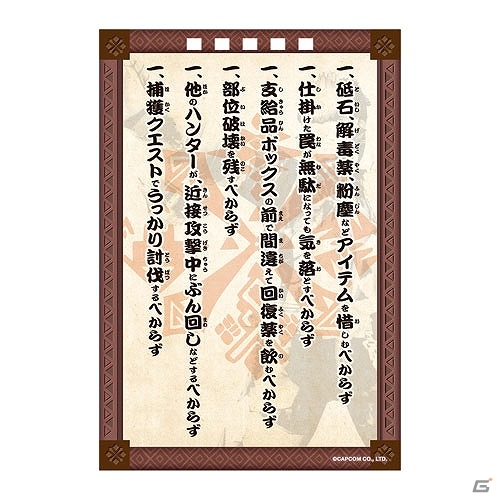 一、砥石、解毒薬、粉塵などアイテムを惜しむべからず
一、仕掛けた罠が無駄になっても気を落とすべからず
一、支給品ボックスの前で間違えて回復薬を飲むべからず
一、部位破壊を残すべからず
一、他のハンターが、近接攻撃中にぶん回しなどするべからず
一、捕獲クエストでうっかり討伐するべからず
©CAPCOM CO., LTD.
G